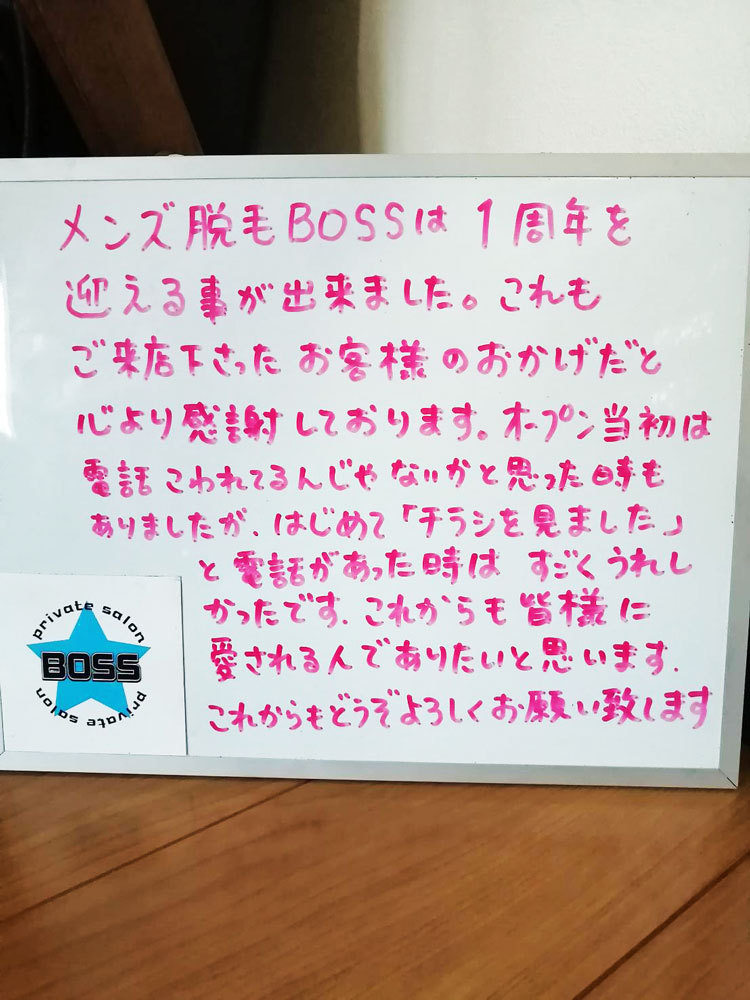 メンズ脱毛BOSSは1周年を
迎える事が出来ました。これも
ご来店下さったお客様のおかげだと
心より感謝しております。オープン当初は
電話こわれてるんじゃないかと思った時も
ありましたが、はじめて「チラシを見ました」
と電話があった時は すごくうれし
かったです。これからも皆様に
愛される人でありたいと思います。
これからもどうぞよろしくお願い致します
private salon
BOSS
private salon